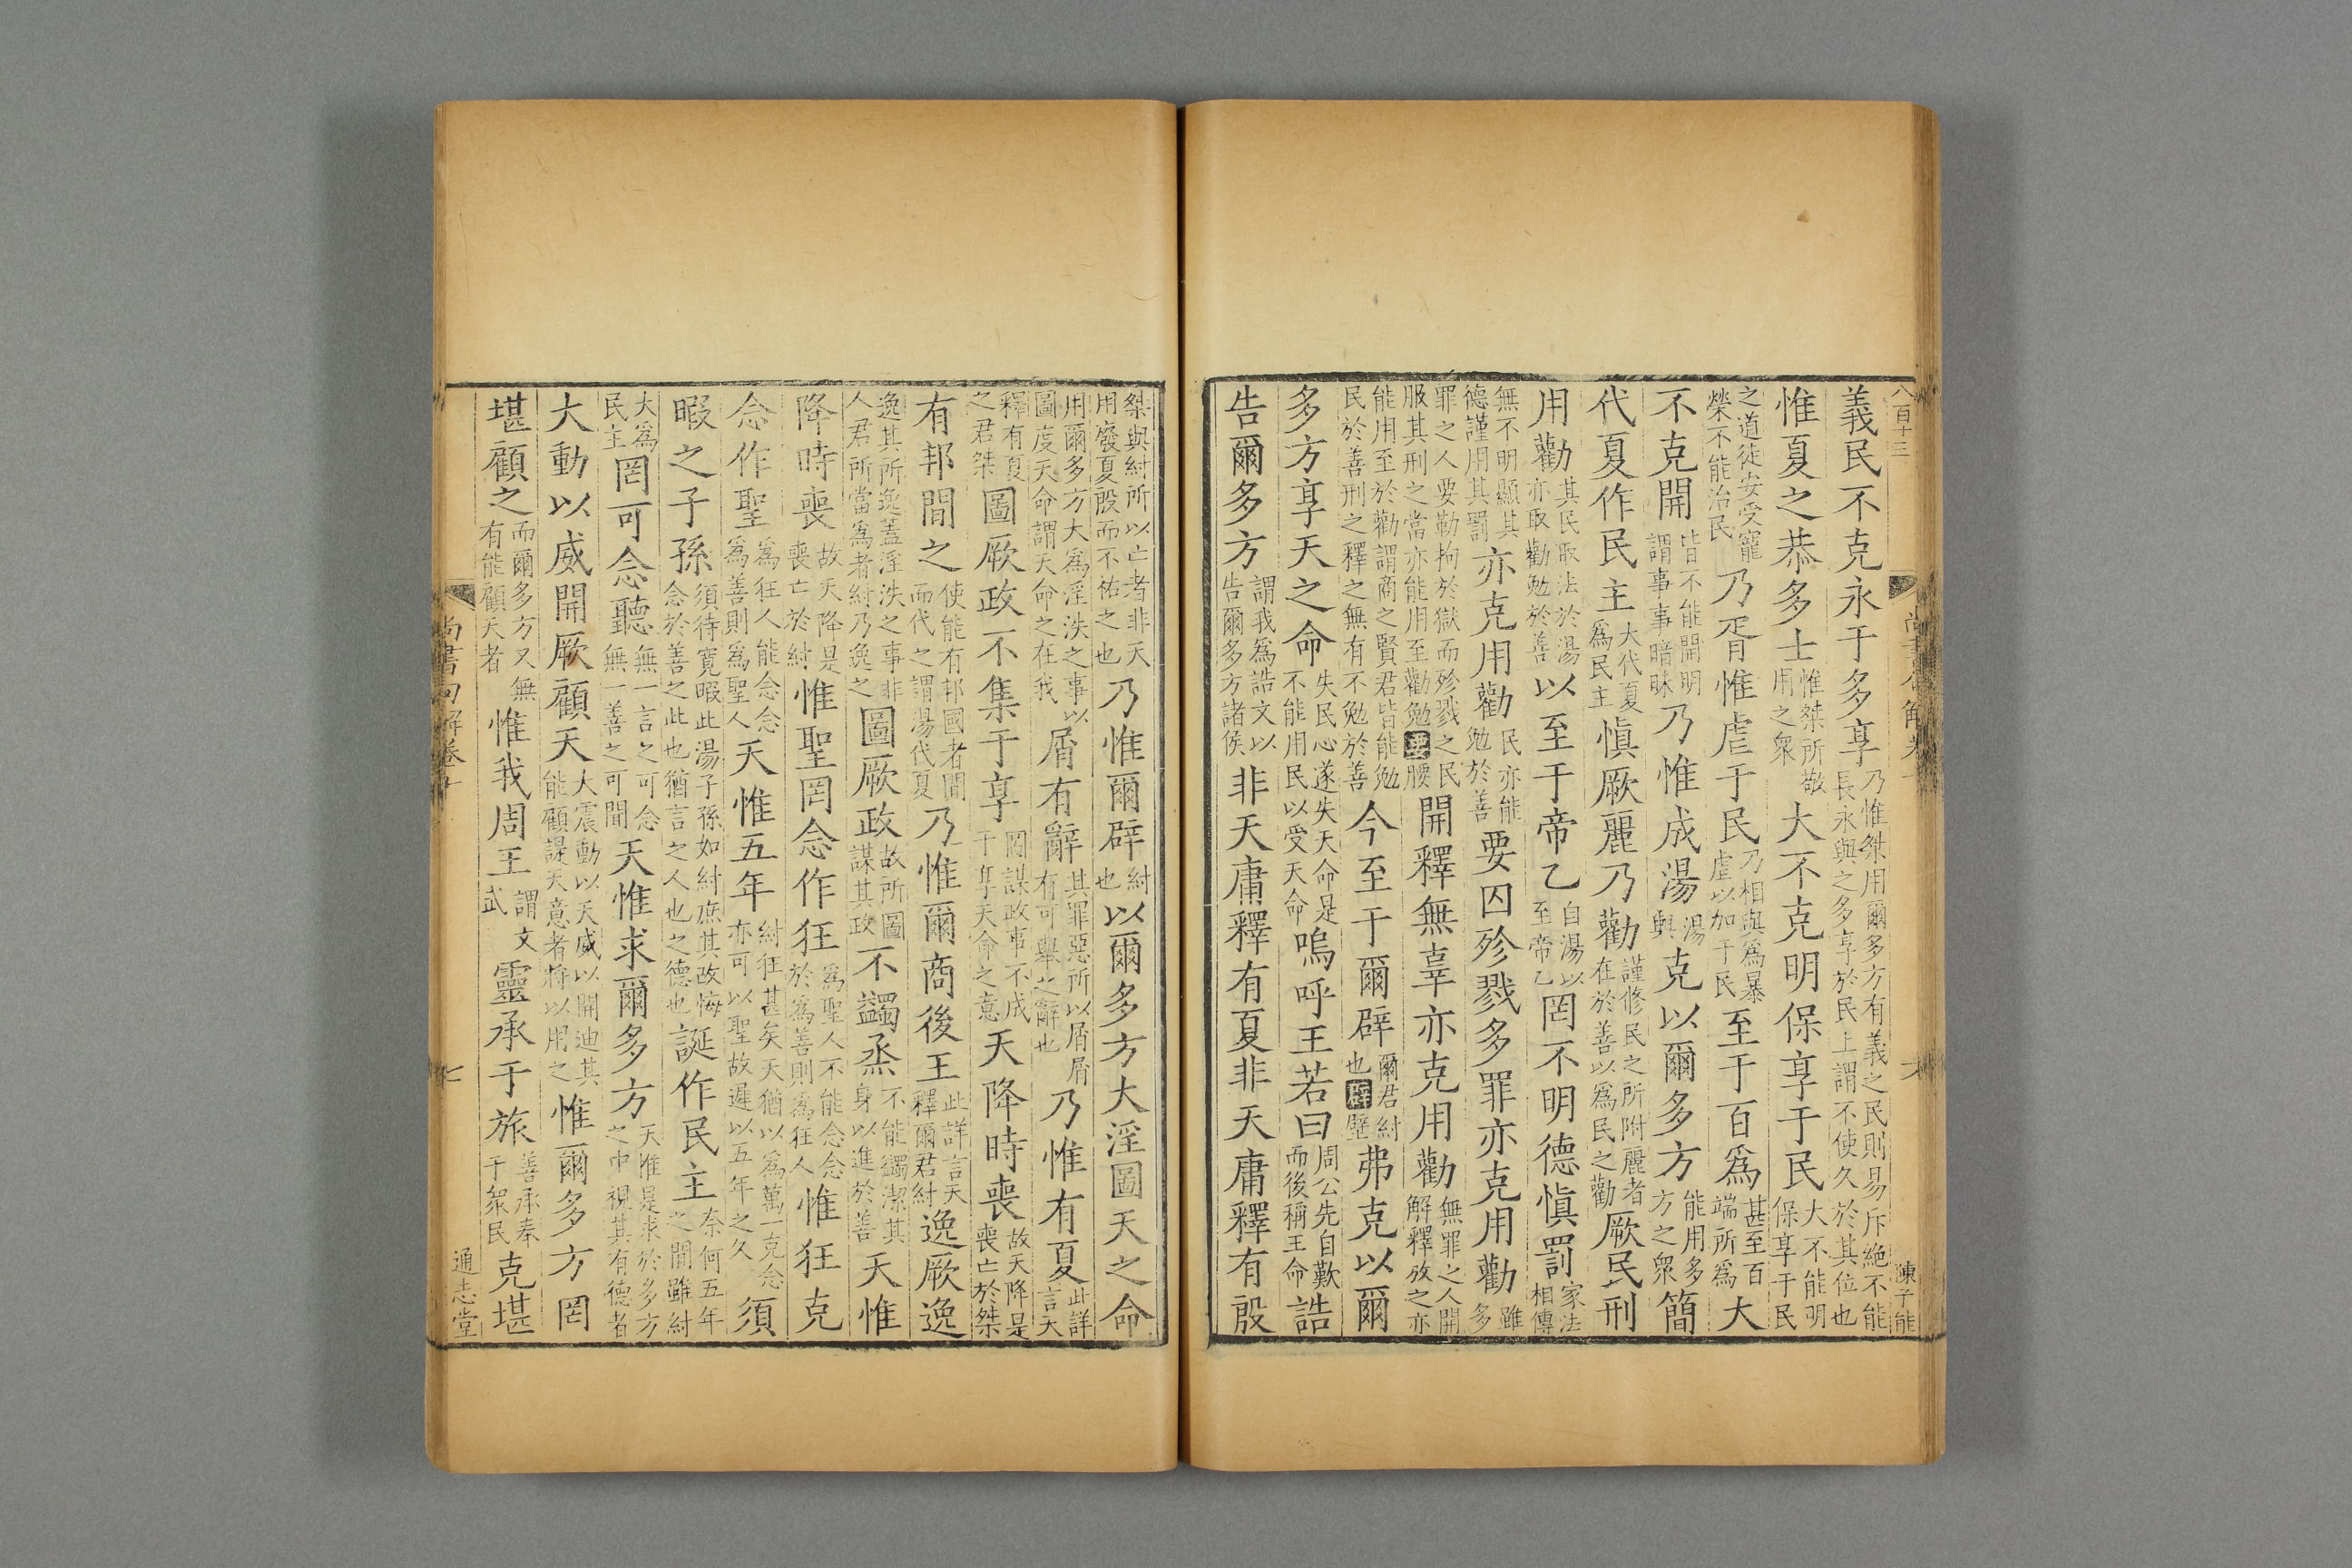 八百十三
陳子能
義民不克永于多享乃惟桀用爾多方有義之民則易斥絶不能長永與之多享於民上謂不使久於其位也
惟夏之恭多士惟桀所敬用之衆大不克明保享于民大不能明保享于民
之道徒安受寵榮不能治民乃胥惟虐于民乃相與爲暴虐以加于民至于百爲甚至百端所爲大
不克開皆不能開明謂事事暗昧乃惟成湯湯與克以爾多方能用多方之衆簡
代夏作民主大代夏爲民主慎厥麗乃勸謹修民之所附麗者在於善以爲民之勸厥民刑
用勸其民取法於湯亦取勸勉於善以至于帝乙自湯以至帝乙罔不明德慎罰家法相傳
無不明顯其德謹用其罰亦克用勸民亦能勉於善要囚殄戮多罪亦克用勸雖多
罪之人要勒拘於獄而殄戮之民服其刑之當亦能用至勸勉要腰開釋無辜亦克用勸無罪之人開解釋放之亦
能用至於勸謂商之賢君皆能勉民於善刑之釋之無有不勉於善今至于爾辟爾君紂也辟璧弗克以爾
多方享天之命失民心遂失天命是不能用民以受天命嗚呼王若曰周公先自歎而後稱王命誥
告爾多方謂我爲誥文以告爾多方諸侯非天庸釋有夏非天庸釋有殷
桀與紂所以亡者非天用廢夏殷而不佑之也乃惟爾辟紂也以爾多方大淫圖天之命
用爾多方大爲淫泆之事以圖度天命謂天命之在我屑有辭其罪惡所以屑屑有可舉之辭也乃惟有夏此詳言天
釋有夏之君桀圖厥政不集于享罔謀政事不成于享天命之意天降時喪故天降是喪亡於桀
有邦間之使能有邦國者間而代之謂湯代夏乃惟爾商後王此詳言天釋爾君紂逸厥逸
逸其所逸蓋淫泆之事非人君所當爲者紂乃逸之圖厥政故所圖謀其政不蠲烝不能蠲潔其身以進於善天惟
降時喪故天降是喪亡於紂惟聖罔念作狂爲聖人不能念念於爲善則爲狂人惟狂克
念作聖爲狂人能念念爲善則爲聖人天惟五年紂狂甚矣天猶以爲萬一克念亦可以聖故遲以五年之久須
暇之子孫須待寬暇此湯子孫如紂庶其改悔念於善之此也猶言之人也之德也誕作民主奈何五年之間雖紂
大爲民主罔可念聽無一言之可念無一善之可聞天惟求爾多方天惟是求於多方之中視其有德者
大動以威開厥顧天大震動以天威以開迪其能顧諟天意者將以用之惟爾多方罔
堪顧之而爾多方又無有能顧天者惟我周王謂文武靈承于旅善承奉于衆民克堪
尚書句解卷十
七
通志堂